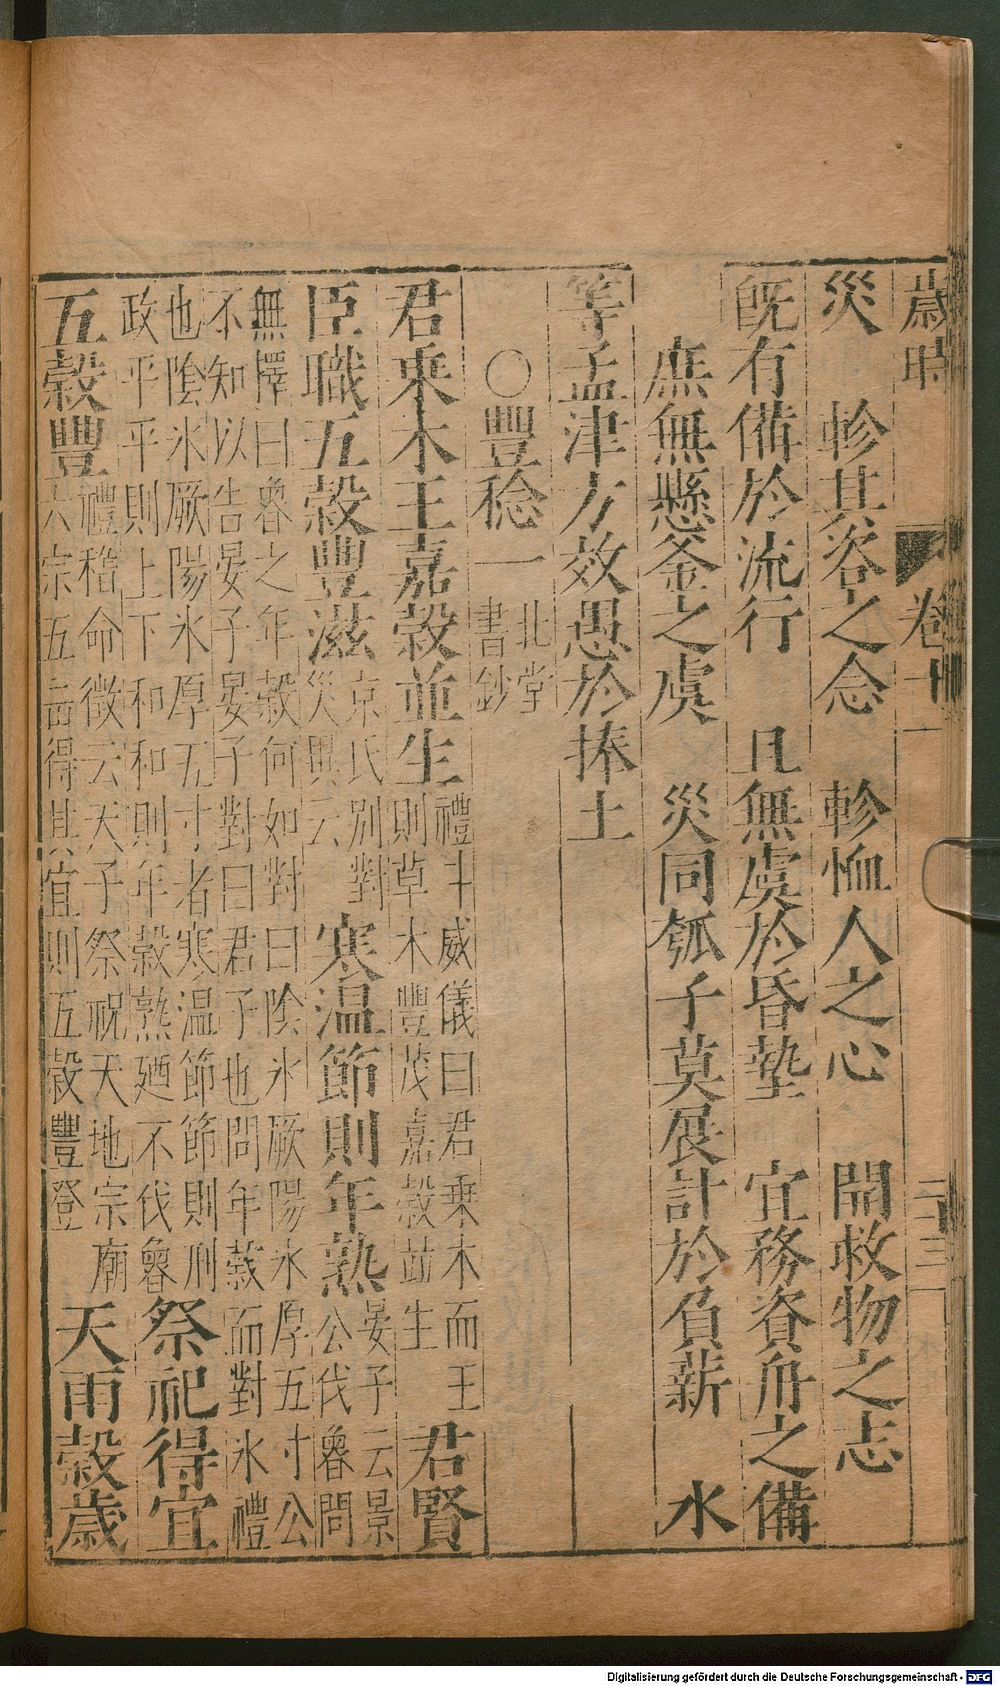 歲時 卷十一 二十三
災 軫其咨之念 軫恤人之心 開救物之志
既有備於流行 且無虞於昏墊 宜務資舟之備
庶無懸釜之虞 災同瓠子莫展計於負薪 水
等孟津方效愚於捧土
○豐稔一 北堂
書鈔
君乘木王嘉穀並生 禮斗威儀曰君乘木而王
則草木豐茂嘉穀並生 君賢
臣職五穀豐滋 京氏別對
災異云 寒溫節則年熟 晏子云景
公伐魯問
無擇曰魯之年穀何如對曰陰氷厥陽氷厚五寸公
不知以告晏子晏子對曰君子也問年穀而對氷禮
也陰氷厥陽氷厚五寸者寒溫節節則刑
政平平則上下和和則年穀熟廼不伐魯 祭祀得宜
五穀豐 禮稽命徵云天子祭祝天地宗廟
六宗五岳得其宜則五穀豐登 天雨穀歲
Digitalisierung gefördert durch die Deutsche Forschungsgemeinschaft - DFG